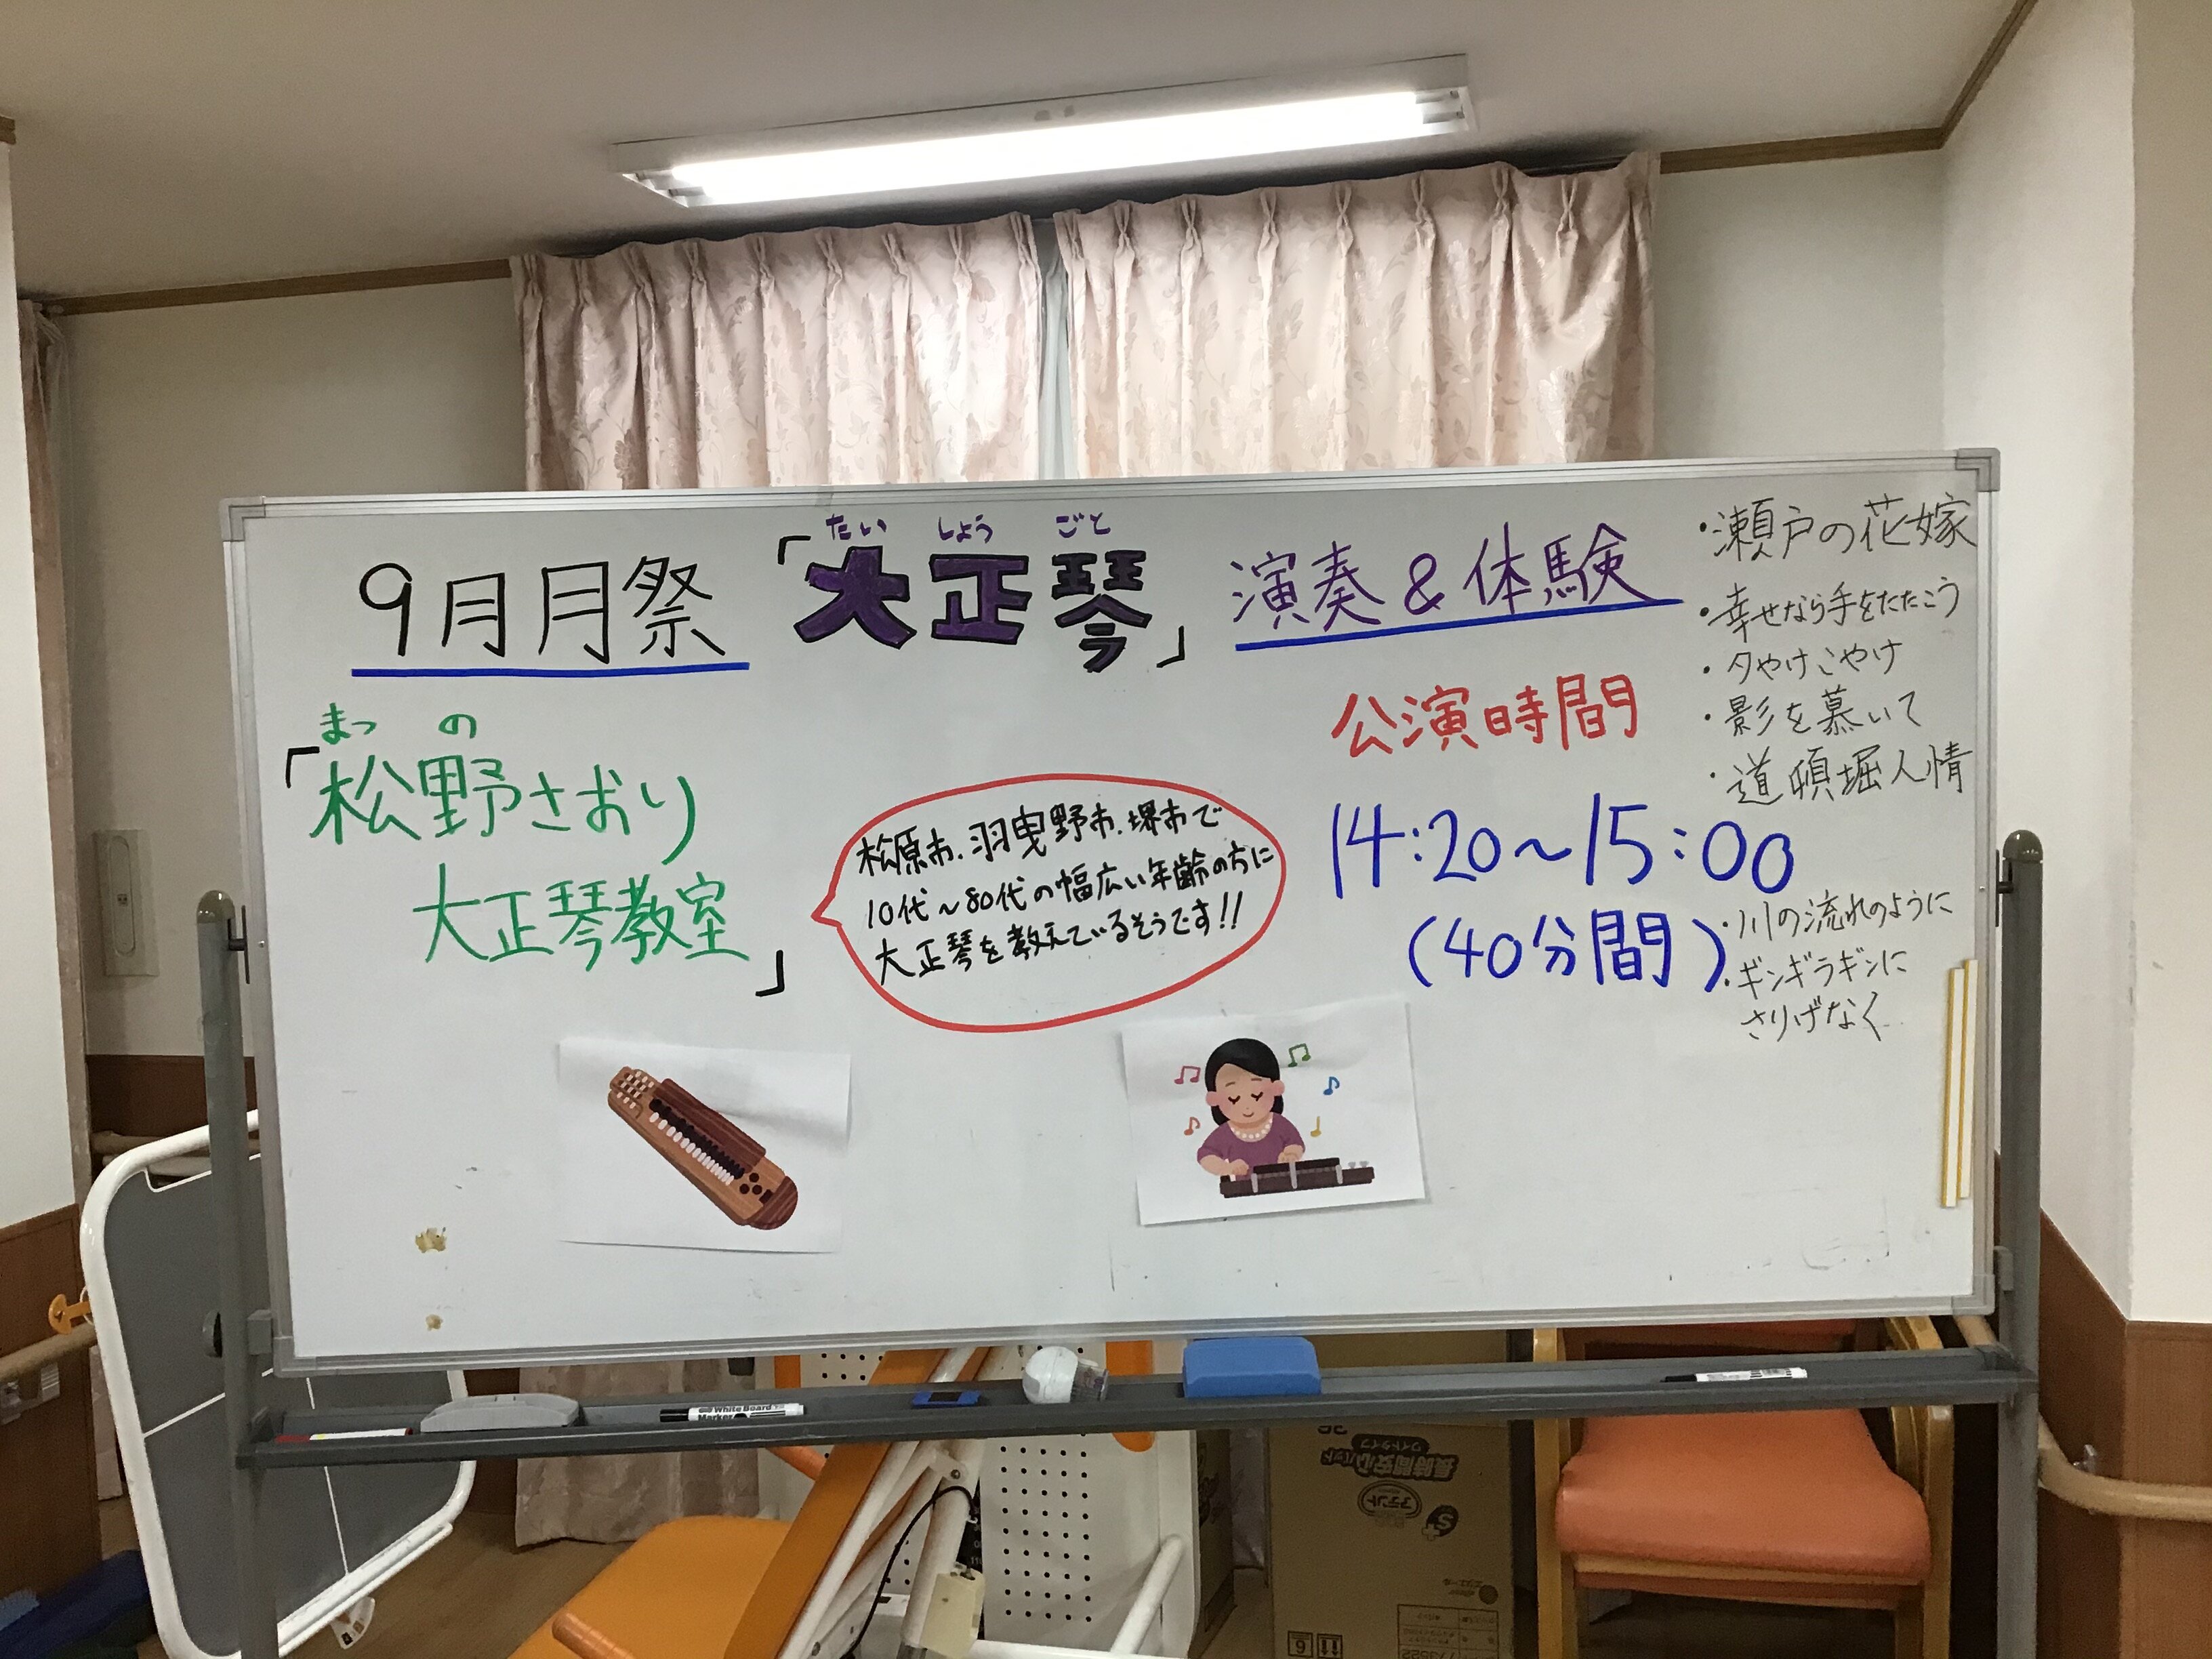 9月月祭
たい しょう ごと
「大正琴」
演奏&体験
まつ の
「松野さおり
大正琴教室」
松原市.羽曳野市.堺市で
10代~80代の幅広い年齢の方に
大正琴を教えているそうです!!
公演時間
14:20~15:00
(40分間)
・瀬戸の花嫁
・幸せなら手をたたこう
・夕やけこやけ
・影を慕いて
・道頓堀人情
・川の流れのように
・ギンギラギンに
さりげなく
White Board
Marker
長時間安心パッド
ワイドタイプ
アテント
S+
6